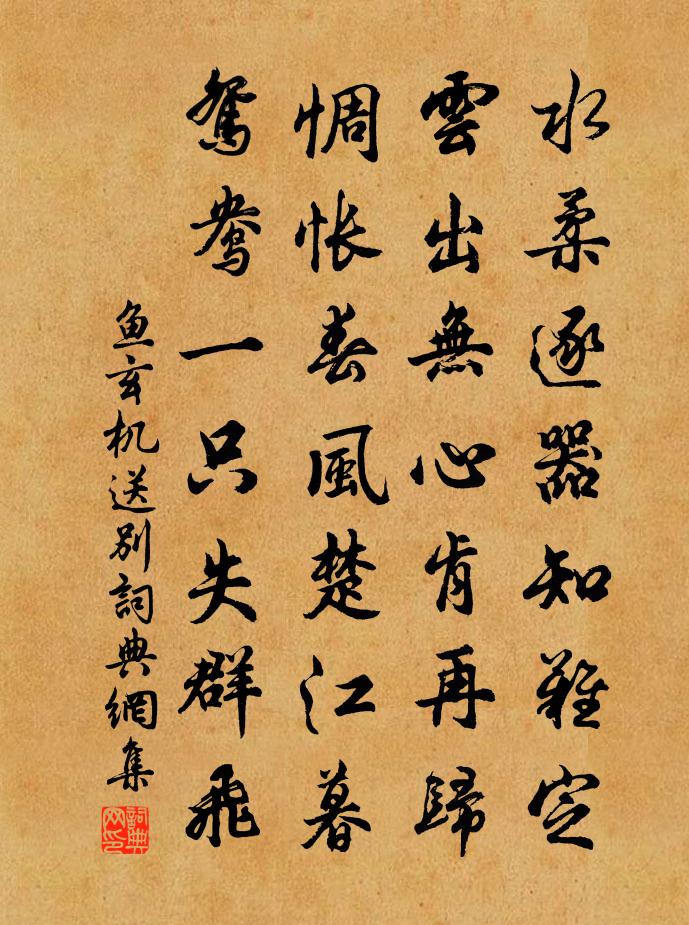 水柔逐器知難定
雲出無心肯再歸
惆悵春風楚江暮
鴛鴦一只失群飛
鱼玄机送别詞典網集
詞典网印